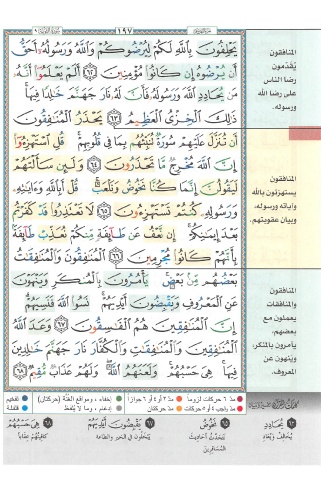 ١٩٧
يَحْلِفُونَ بِاللَّهِ لَكُمْ لِيُرْضُوكُمْ وَاللَّهُ وَرَسُولُهُ أَحَقُّ
أَن يُرْضُوهُ إِن كَانُوا مُؤْمِنِينَ ٦٢ أَلَمْ يَعْلَمُوا أَنَّهُ
مَن يُحَادِدِ اللَّهَ وَرَسُولَهُ فَأَنَّ لَهُ نَارَ جَهَنَّمَ خَالِدًا فِيهَا
ذَٰلِكَ الْخِزْيُ الْعَظِيمُ ٦٣ يَحْذَرُ الْمُنَافِقُونَ
أَن تُنَزَّلَ عَلَيْهِمْ سُورَةٌ تُنَبِّئُهُم بِمَا فِي قُلُوبِهِمْ قُلِ اسْتَهْزِئُوا
إِنَّ اللَّهَ مُخْرِجٌ مَّا تَحْذَرُونَ ٦٤ وَلَئِن سَأَلْتَهُمْ
لَيَقُولُنَّ إِنَّمَا كُنَّا نَخُوضُ وَنَلْعَبُ قُلْ أَبِاللَّهِ وَآيَاتِهِ
وَرَسُولِهِ كُنتُمْ تَسْتَهْزِئُونَ ٦٥ لَا تَعْتَذِرُوا قَدْ كَفَرْتُم
بَعْدَ إِيمَانِكُمْ إِن نَّعْفُ عَن طَائِفَةٍ مِّنكُمْ نُعَذِّبْ طَائِفَةً
بِأَنَّهُمْ كَانُوا مُجْرِمِينَ ٦٦ الْمُنَافِقُونَ وَالْمُنَافِقَاتُ
بَعْضُهُم مِّن بَعْضٍ يَأْمُرُونَ بِالْمُنكَرِ وَيَنْهَوْنَ
عَنِ الْمَعْرُوفِ وَيَقْبِضُونَ أَيْدِيَهُمْ نَسُوا اللَّهَ فَنَسِيَهُمْ
إِنَّ الْمُنَافِقِينَ هُمُ الْفَاسِقُونَ ٦٧ وَعَدَ اللَّهُ
الْمُنَافِقِينَ وَالْمُنَافِقَاتِ وَالْكُفَّارَ نَارَ جَهَنَّمَ خَالِدِينَ
فِيهَا هِيَ حَسْبُهُمْ وَلَعَنَهُمُ اللَّهُ وَلَهُمْ عَذَابٌ مُّقِيمٌ ٦٨
المنافقون
يقدمون
رضا الناس
على رضا الله
ورسوله.
المنافقون
يستهزئون بالله
وآياته ورسوله،
وبيان عقوبتهم.
المنافقون
والمنافقات
يعملون مع
بعضهم،
يأمرون بالمنكر،
وينهون عن
المعروف.
مدّ ٦ حركات لزوماً مدّ ٢ أو ٤ أو ٦ جوازاً إخفاء، ومواقع الغنّة (حركتان) تفخيم
مدّ واجب ٤ أو ٥ حركات مدّ حركتان إدغام، وما لا يُلفظ قلقلة
٦٣ يُحَادِدِ ٦٥ نَخُوضُ ٦٧ يَقْبِضُونَ أَيْدِيَهُمْ ٦٨ هِيَ حَسْبُهُمْ